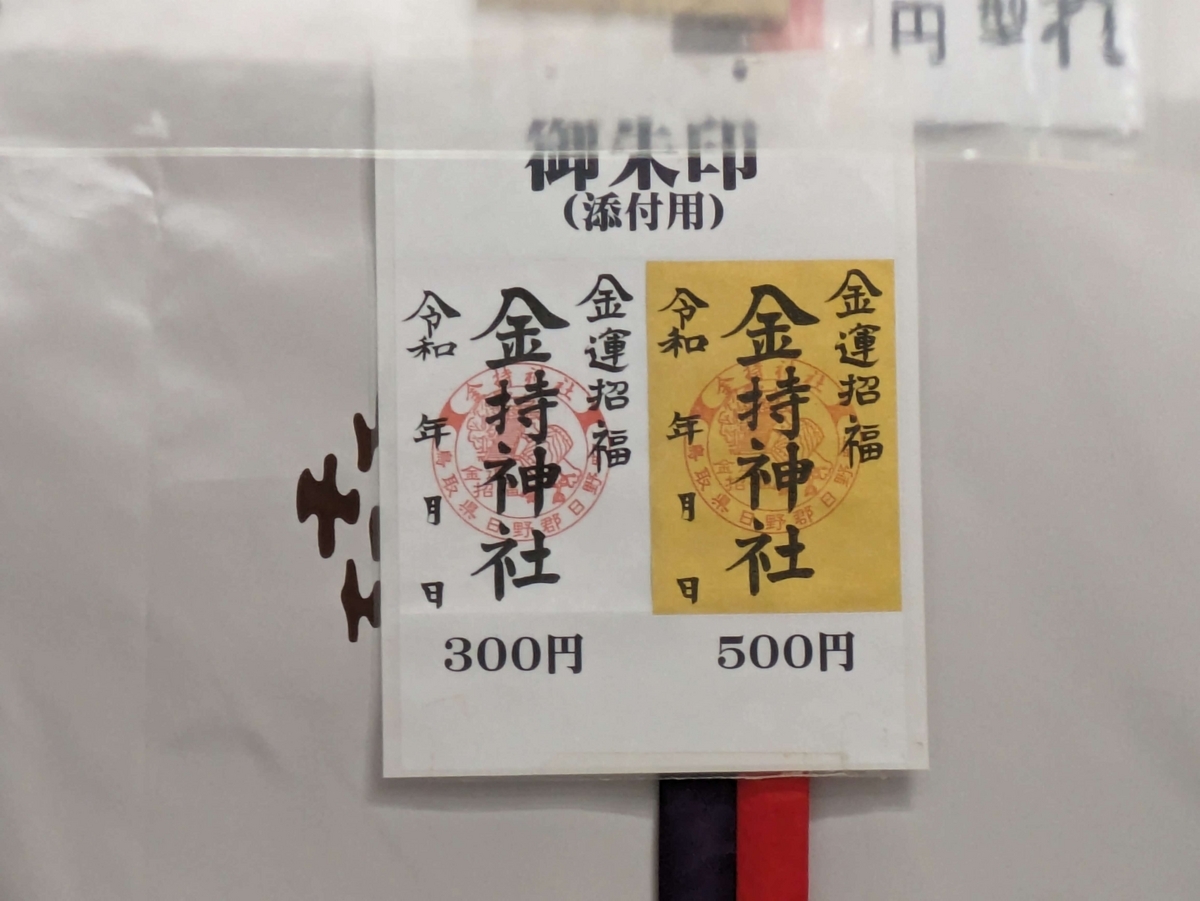 円
御朱印
(添付用)
金運招福
金持神社
令和 年 月 日
金持神社
鳥取県日野郡日野
金運招福
金持神社
令和 年 月 日
金持神社
鳥取県日野郡日野
300円
500円